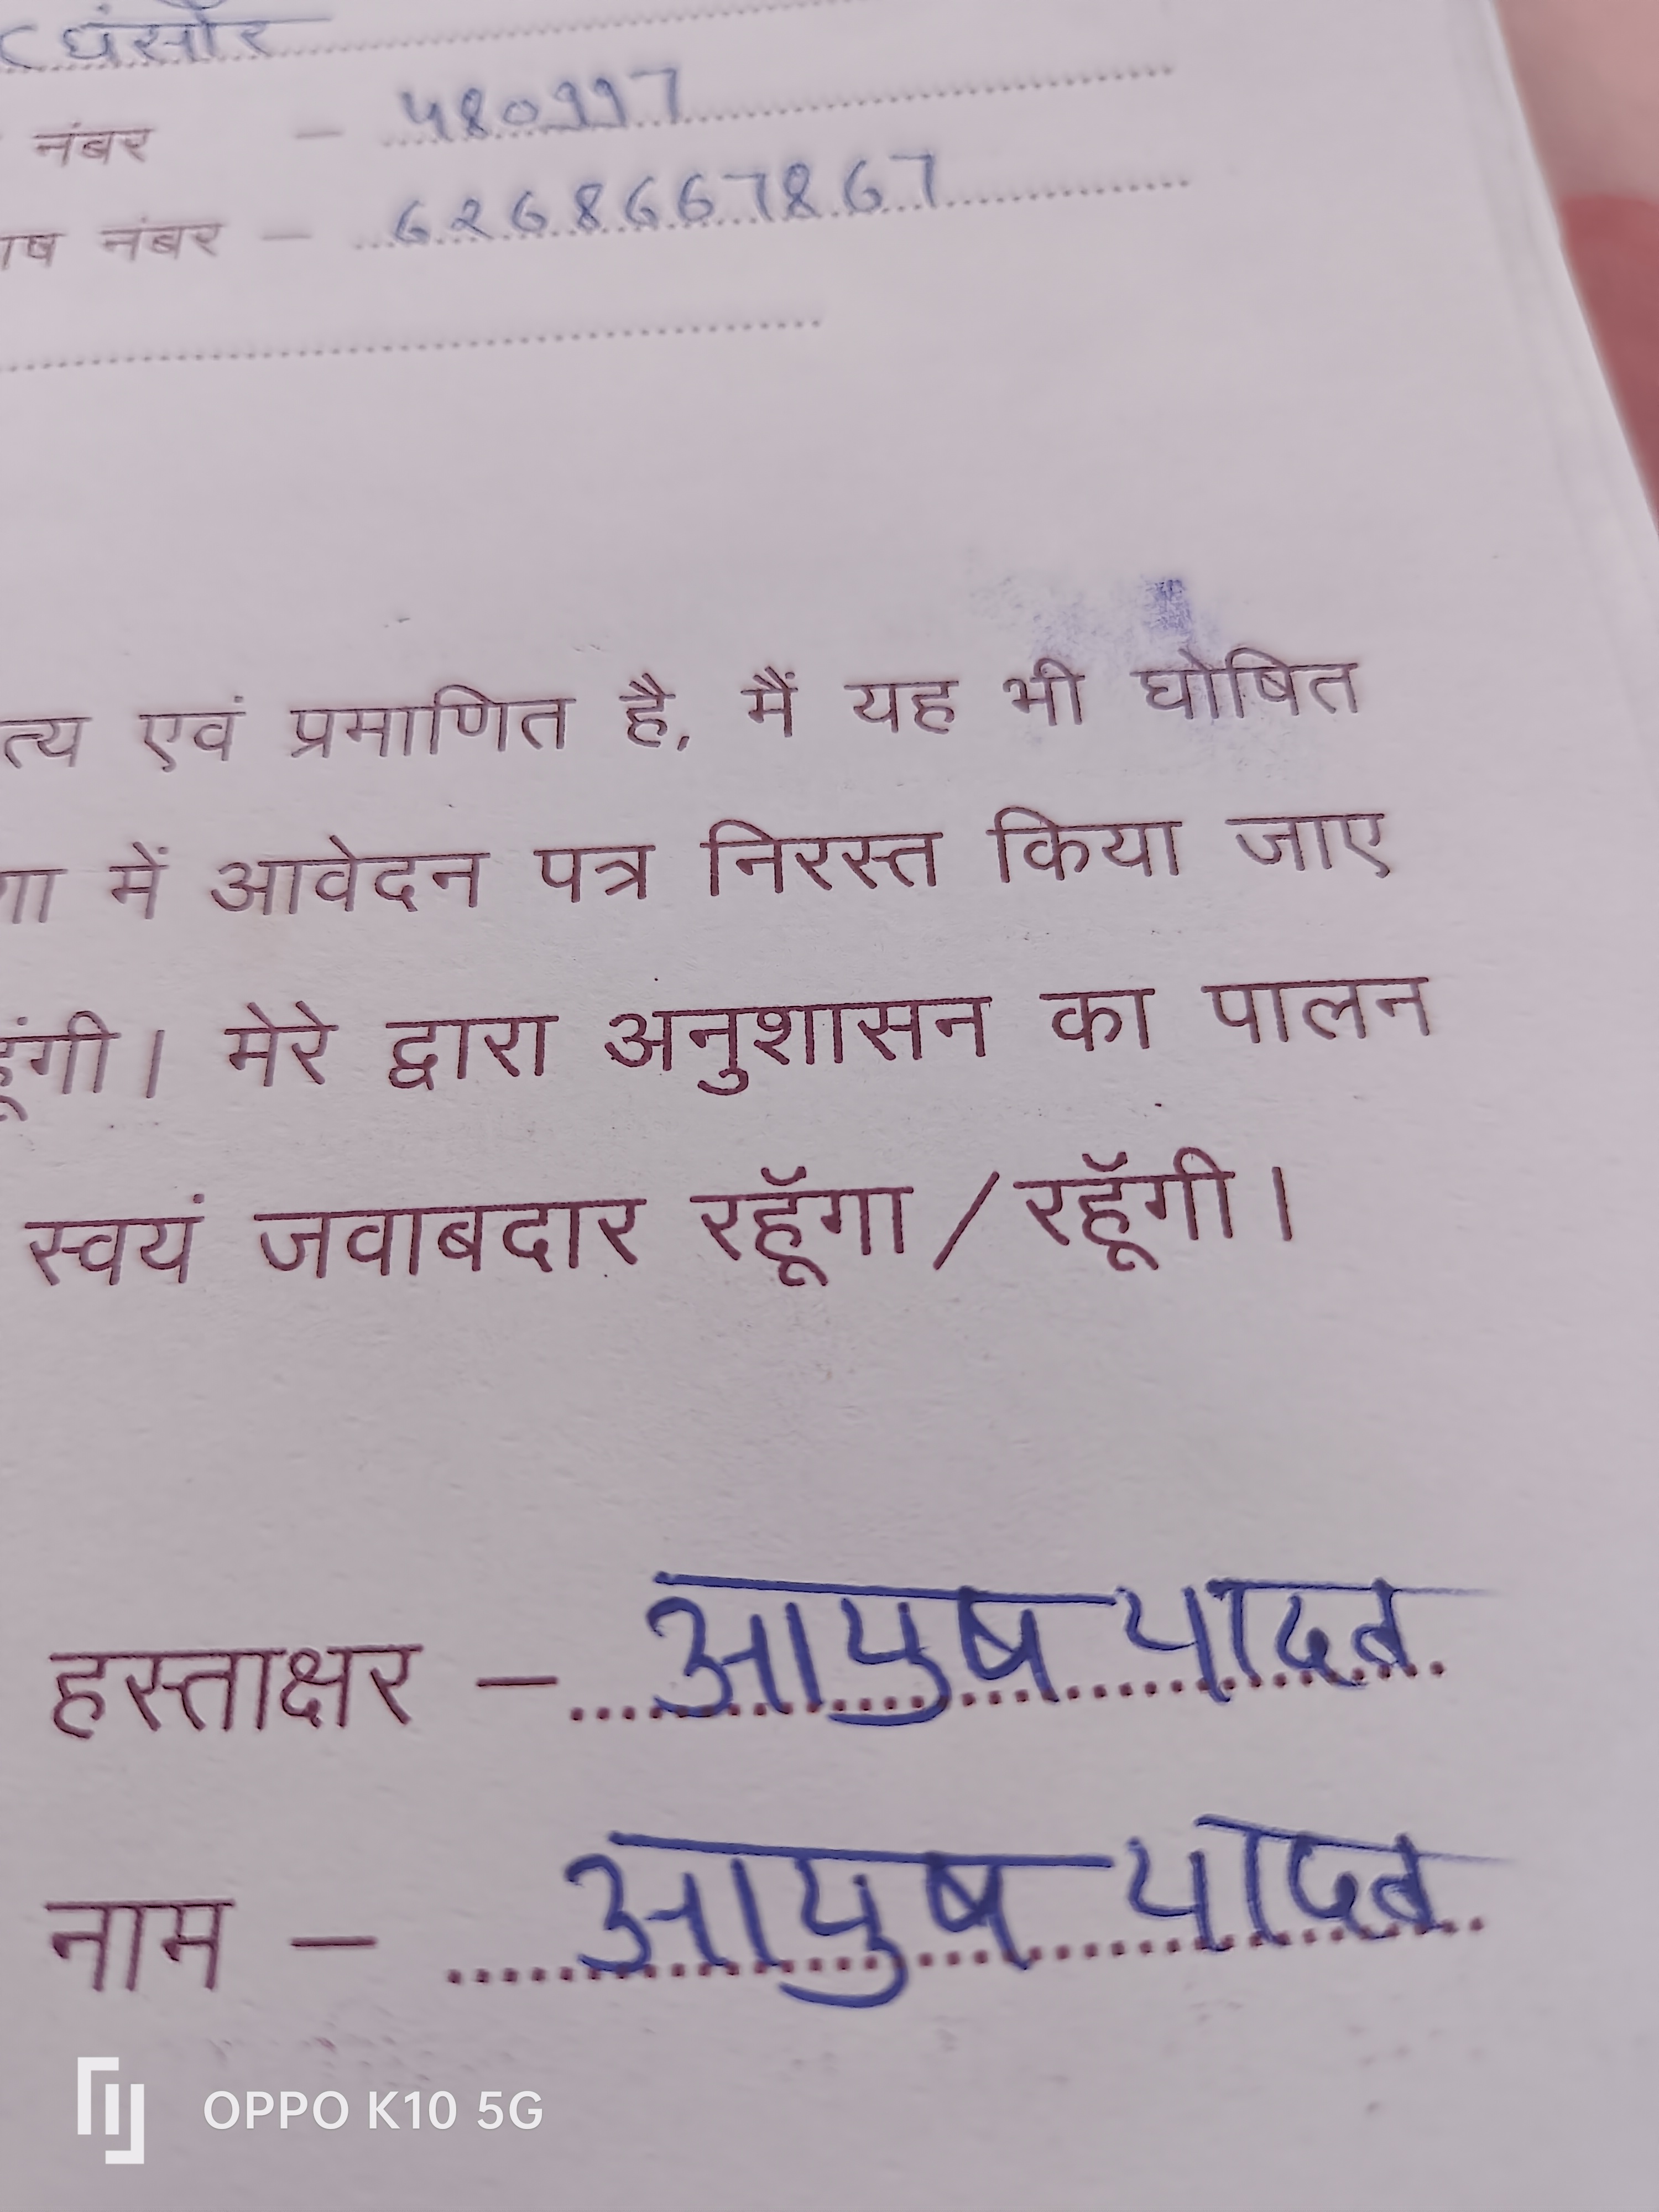 घंसौर
नंबर – 480997
नंबर – 6268667867
एवं प्रमाणित है, मैं यह भी घोषित
में आवेदन पत्र निरस्त किया जाए
मेरे द्वारा अनुशासन का पालन
स्वयं जवाबदार रहूँगा/रहूँगी।
हस्ताक्षर – आयुष यादव
नाम – आयुष यादव
OPPO K10 5G